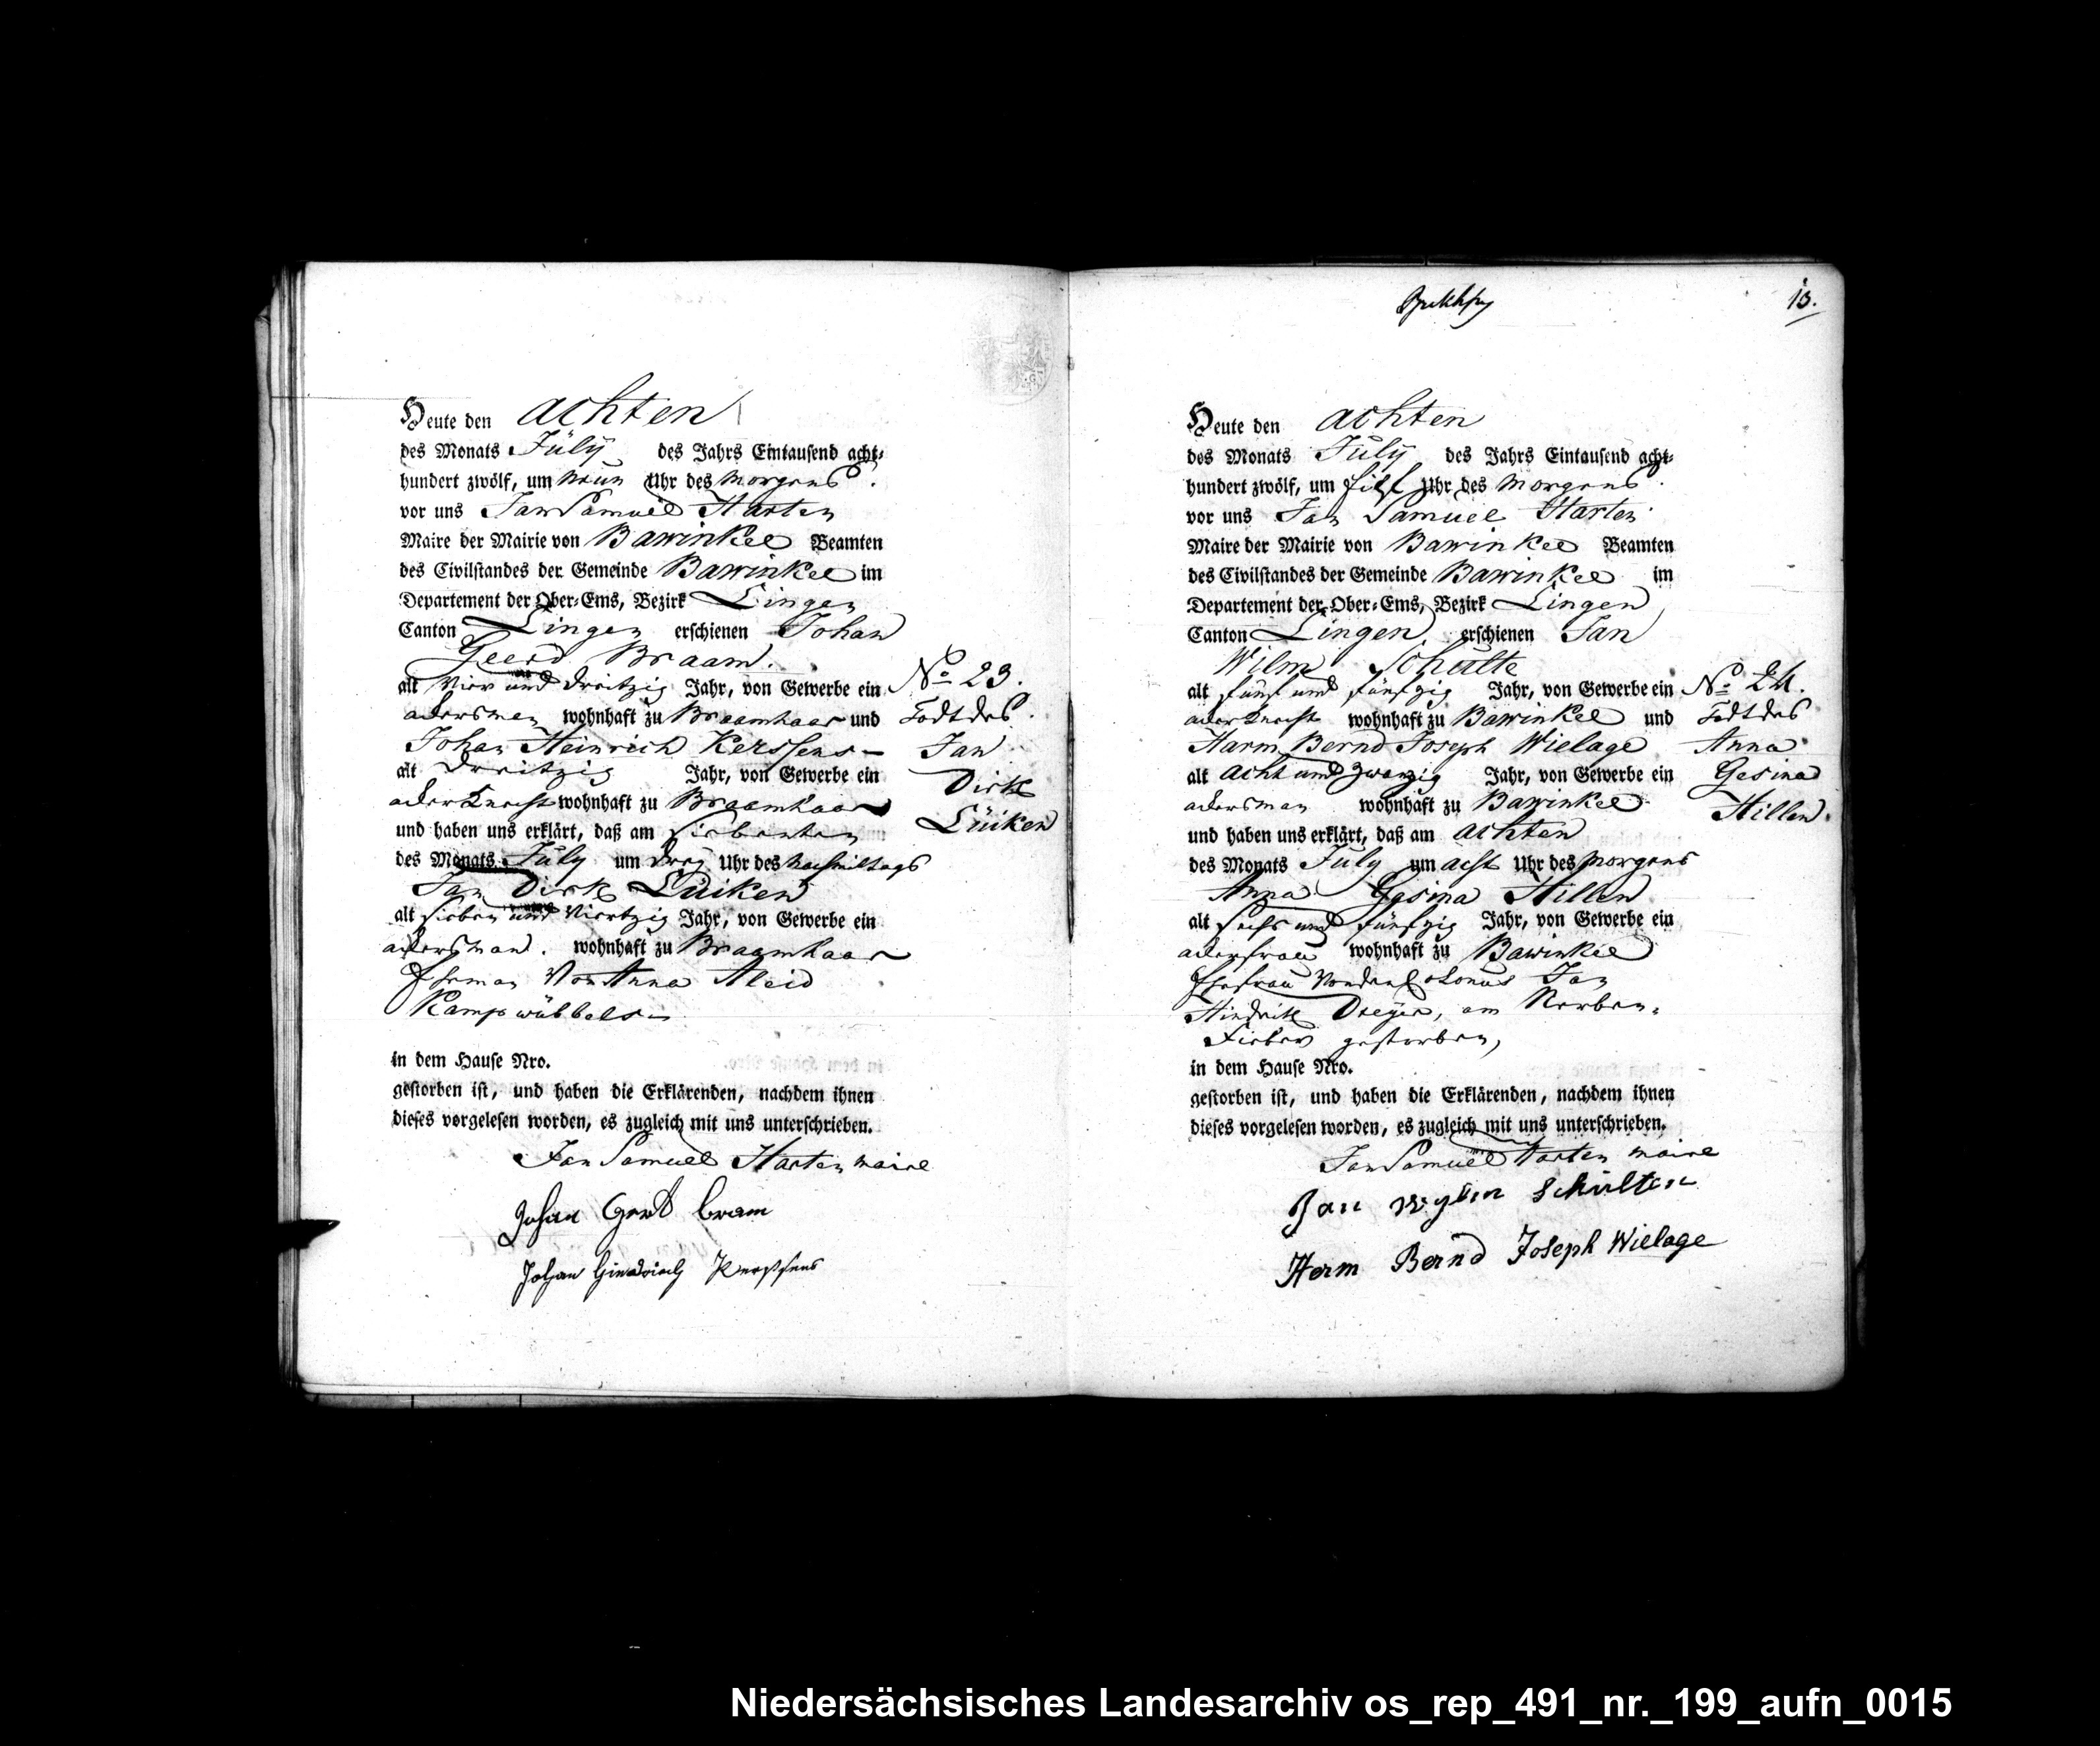 Heute den achten
des Monats Július des Jahrs Eintausend acht-
hundert zwölf, um neun Uhr des Morgens.
vor uns Jan Samuel Harten
Maire der Mairie von Bawinkel Beamten
des Civilstandes der Gemeinde Bawinkel im
Departement der Ober-Ems, Bezirk Lingen
Canton Lingen erschienen Johan
Geerd Braam.
alt Vier und Dreitzig Jahr, von Gewerbe ein
ackersman wohnhaft zu Braamhaar und
Johan Heinrich Kerssens
alt Dreitzig Jahr, von Gewerbe ein
ackerknecht wohnhaft zu Braamhaar
und haben uns erklärt, daß am Siebenten
des Monats July um Drey Uhr des Nachmittags
Jan Dirk Lüiken
alt sieben und Viertzig Jahr, von Gewerbe ein
ackersman. wohnhaft zu Braamhaar
Eheman Von Anna Aleid
Kampwübbels
in dem Hause Nro.
gestorben ist, und haben die Erklärenden, nachdem ihnen
dieses vorgelesen worden, es zugleich mit uns unterschrieben.
Jan Samuel Harten maire
Johan Gerd bram
Johan Hindrich Kerssens
No 23.
Todt des
Jan
Dirk
Lüiken
13.
Heute den achten
des Monats July des Jahrs Eintausend acht-
hundert zwölf, um Uhr des Morgens
vor uns Jan Samuel Harten
Maire der Mairie von Bawinkel Beamten
des Civilstandes der Gemeinde Bawinkel im
Departement der Ober-Ems, Bezirk Lingen
Canton Lingen, erschienen Jan
Wilm Schulte
alt fünf und fünfzig Jahr, von Gewerbe ein
ackerknecht wohnhaft zu Bawinkel und
Harm Bernd Joseph Wielage
alt acht und zwanzig Jahr, von Gewerbe ein
ackersman wohnhaft zu Bawinkel
und haben uns erklärt, daß am achten
des Monats July um acht Uhr des Morgens
Anna Gesina Hillen
alt sechs und fünfzig Jahr, von Gewerbe ein
ackerfrau wohnhaft zu Bawinkel
Ehefrau Von den Colonus Jan
Hindrik Dreyer, am Nerben-
Fieber gestorben,
in dem Hause Nro.
gestorben ist, und haben die Erklärenden, nachdem ihnen
dieses vorgelesen worden, es zugleich mit uns unterschrieben.
Jan Samuel Harten maire
Jan Wylm Schulten
Herm Bernd Joseph Wielage
No 24.
Todt des
Anna
Gesina
Hillen.
Niedersächsisches Landesarchiv os_rep_491_nr._199_aufn_0015